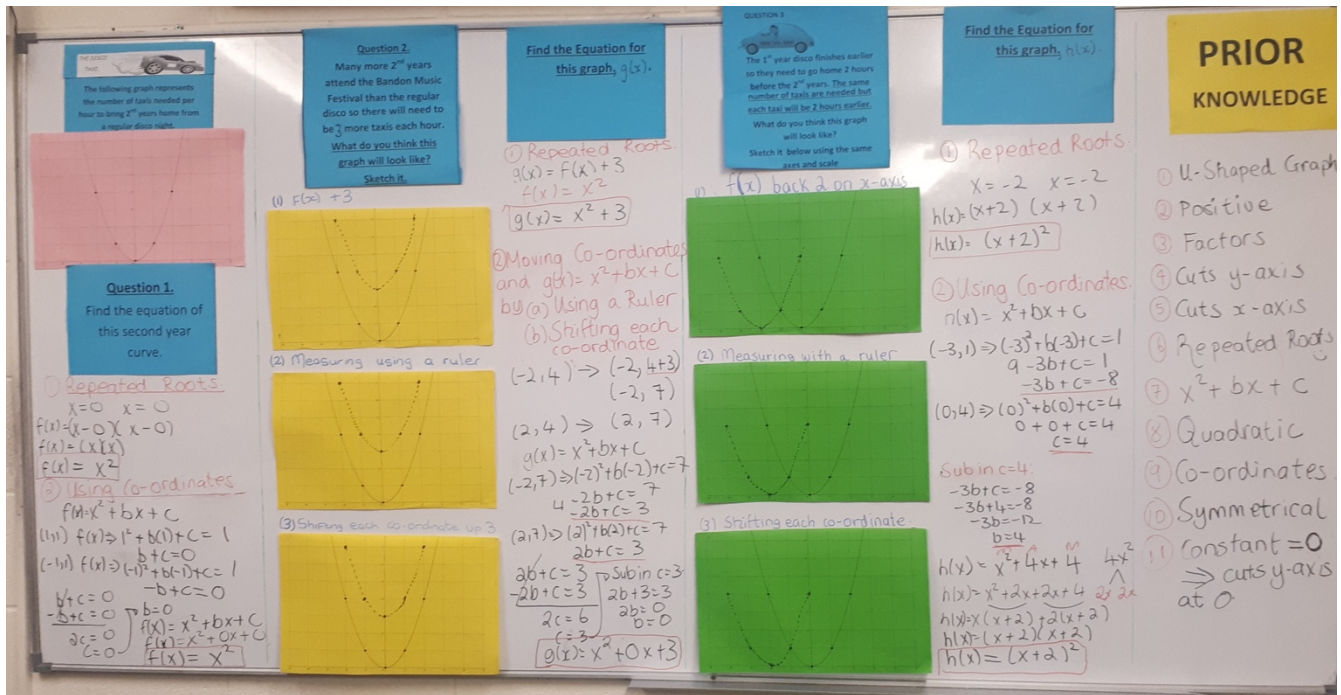 THE DISCO
The following graph represents
the number of taxis needed per
hour to bring 2nd years home from
a regular disco night.
Question 1.
Find the equation of
this second year
curve.
① Repeated Roots
x=0 x=0
f(x)=(x-0)(x-0)
f(x)=(x)(x)
f(x)= x²
② Using Co-ordinates
f(x)=x²+bx+c
(1,1) f(x)⇒ 1²+b(1)+c=1
b+c=0
(-1,1) f(x)⇒(-1)²+b(-1)+c=1
-b+c=0
b+c=0
-b+c=0
2c=0
c=0
b=0
f(x)=x²+bx+c
f(x)=x²+0x+0
f(x)= x²
Question 2.
Many more 2nd years
attend the Bandon Music
Festival than the regular
disco so there will need to
be 3 more taxis each hour.
What do you think this
graph will look like?
Sketch it.
(1) F(x) +3
(2) Measuring using a ruler
(3) Shifting each co-ordinate up 3
Find the Equation for
this graph, g(x).
① Repeated Roots.
g(x)= F(x)+3
f(x)= x²
g(x)= x²+3
② Moving Co-ordinates
and g(x)= x²+bx+c
by (a) Using a Ruler
(b) Shifting each
co-ordinate
(-2,4) → (-2,4+3)
(-2,7)
(2,4) → (2,7)
g(x)= x²+bx+c
(-2,7)⇒(-2)²+b(-2)+c=7
4-2b+c=7
-2b+c=3
(2,7)⇒(2)²+b(2)+c=7
2b+c=3
2b+c=3
-2b+c=3
2c=6
c=3
Sub in c=3
2b+3=3
2b=0
b=0
g(x)=x²+0x+3
QUESTION 3
The 1st year disco finishes earlier
so they need to go home 2 hours
before the 2nd years. The same
number of taxis are needed but
each taxi will be 2 hours earlier.
What do you think this graph
will look like?
Sketch it below using the same
axes and scale
(1) f(x) back 2 on x-axis
(2) Measuring with a ruler
(3) Shifting each co-ordinate.
Find the Equation for
this graph, h(x).
① Repeated Roots.
x=-2 x=-2
h(x)=(x+2)(x+2)
h(x)= (x+2)²
② Using Co-ordinates.
h(x)= x²+bx+c
(-3,1)⇒(-3)²+b(-3)+c=1
9-3b+c=1
-3b+c=-8
(0,4)⇒(0)²+b(0)+c=4
0+0+c=4
c=4
Sub in c=4:
-3b+c=-8
-3b+4=-8
-3b=-12
b=4
h(x)= x²+4x+4 4x²
h(x)=x²+2x+2x+4 2x 2x
h(x)=x(x+2)+2(x+2)
h(x)=(x+2)(x+2)
h(x)=(x+2)²
PRIOR
KNOWLEDGE
① U-Shaped Graph
② Positive
③ Factors
④ Cuts y-axis
⑤ Cuts x-axis
⑥ Repeated Roots
⑦ x²+bx+c
⑧ Quadratic
⑨ Co-ordinates
⑩ Symmetrical
⑪ Constant=0
⇒ cuts y-axis
at 0